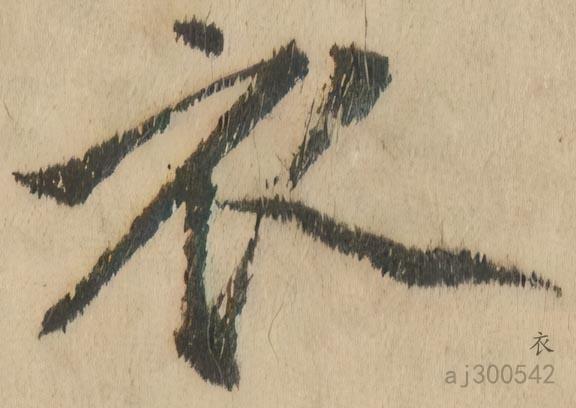 衣
衣
aj300542